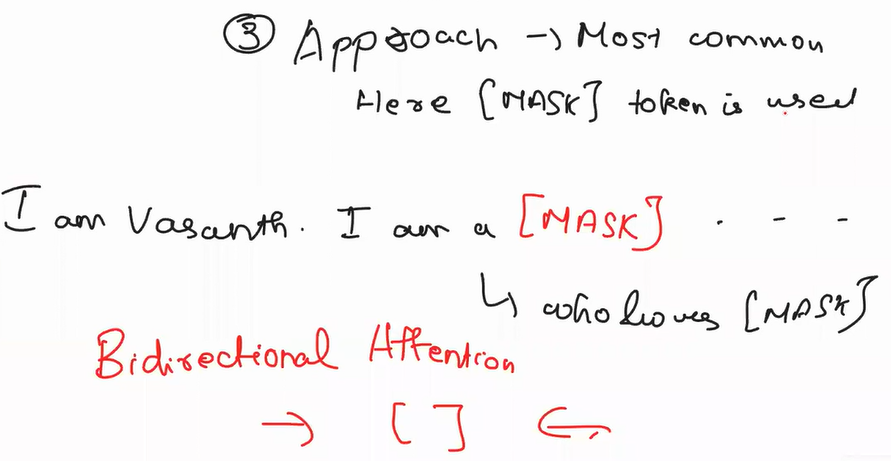 ③ Approach → Most common
Here [MASK] token is used
I am Vasanth. I am a [MASK] . - -
↳ who loves [MASK]
Bidirectional Attention
→ [ ] ←